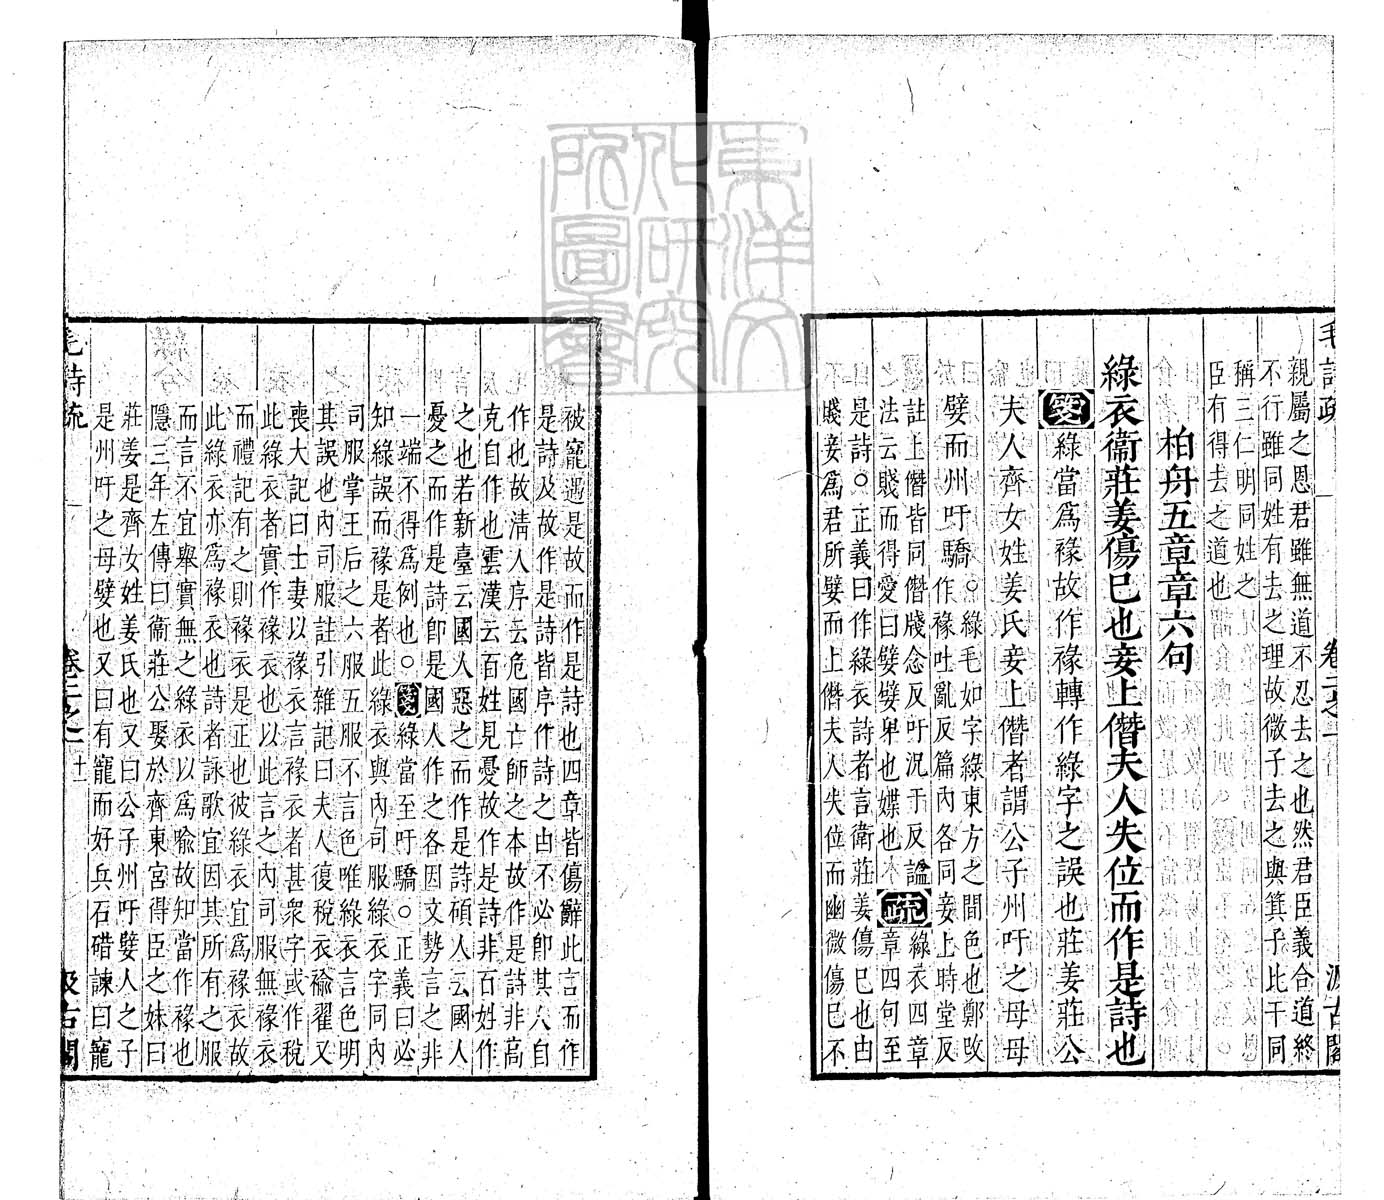 毛詩疏 卷二之一 汲古閣
親屬之恩君雖無道不忍去之也然君臣義合道終
不行雖同姓有去之理故微子去之與箕子比干同
稱三仁明同姓之
臣有得去之道也
柏舟五章章六句
綠衣衞莊姜傷已也妾上僭夫人失位而作是詩也
箋綠當爲褖故作褖轉作綠字之誤也莊姜莊公
夫人齊女姓姜氏妾上僭者謂公子州吁之母母
嬖而州吁驕○綠毛如字綠東方之間色也鄭改
作褖吐亂反篇內各同妾上時堂反
註上僭皆同僭牋念反吁況于反諡
法云賤而得愛曰嬖嬖卑也媟也
疏綠衣四章
章四句至
是詩○正義曰作綠衣詩者言衞莊姜傷已也由
賤妾爲君所嬖而上僭夫人失位而幽微傷已不
被寵遇是故而作是詩也四章皆傷辭此言而作
是詩及故作是詩皆序作詩之由不必卽其人自
作也故淸人序云危國亡師之本故作是詩非高
克自作也雲漢云百姓見憂故作是詩非百姓作
之也若新臺云國人惡之而作是詩碩人云國人
憂之而作是詩卽是國人作之各因文勢言之非
一端不得爲例也○箋綠當至吁驕○正義曰必
知綠誤而褖是者此綠衣與內司服綠衣字同內
司服掌王后之六服五服不言色唯綠衣言色明
其誤也內司服註引雜記曰夫人復稅衣褕翟又
喪大記曰士妻以褖衣言褖衣者甚衆字或作稅
此綠衣者實作褖衣也以此言之內司服無褖衣
而禮記有之則褖衣是正也彼綠衣宜爲褖衣故
此綠衣亦爲褖衣也詩者詠歌宜因其所有之服
而言不宜舉實無之綠衣以爲喩故知當作褖也
隱三年左傳曰衞莊公娶於齊東宮得臣之妹曰
莊姜是齊女姓姜氏也又曰公子州吁嬖人之子
是州吁之母嬖也又曰有寵而好兵石碏諫曰寵
毛詩疏 卷二之一 十一 汲古閣
東洋文化研究所圖書